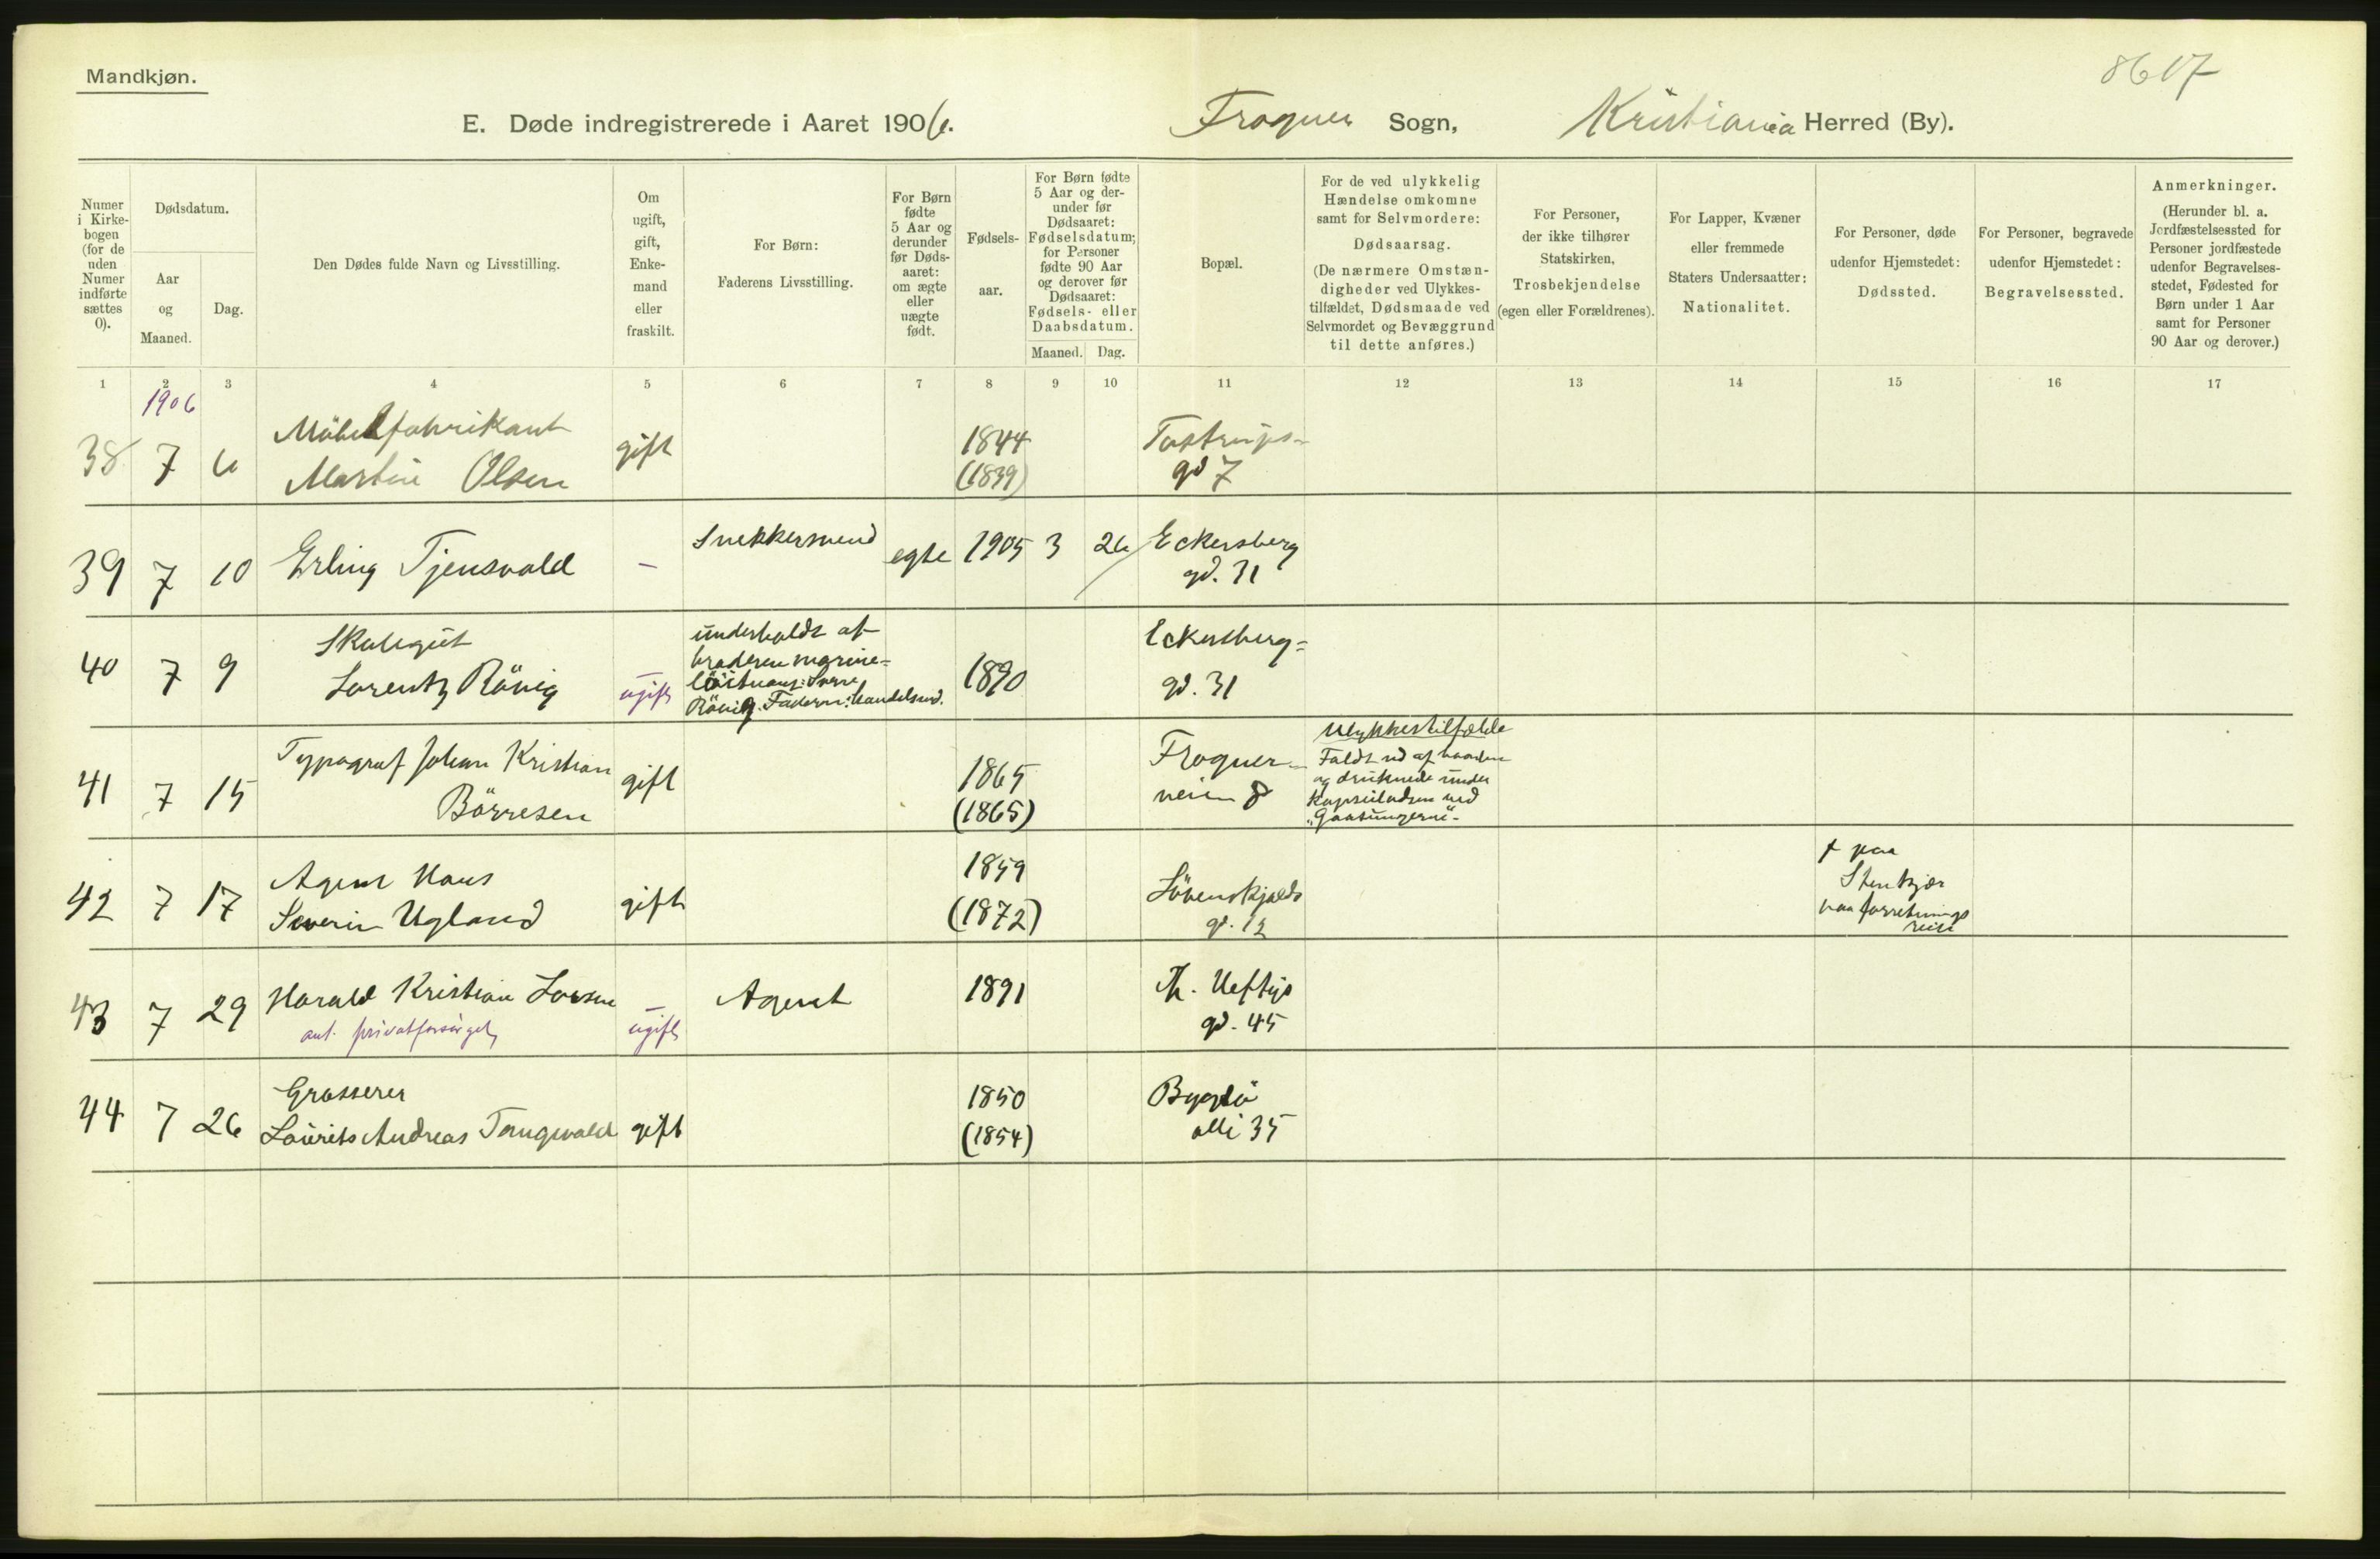 Mandkjøn.
8617
E. Døde indregistrerede i Aaret 1906. Frogner Sogn, Kristiania Herred (By).
Numer
i Kirke-
bogen
(for de
uden
Numer
indførte
sættes
0).
Dødsdatum.
Aar
og
Maaned.
Dag.
Den Dødes fulde Navn og Livsstilling.
Om
ugift,
gift,
Enke-
mand
eller
fraskilt.
For Børn:
Faderens Livsstilling.
For Børn
fødte
5 Aar og
derunder
før Døds-
aaret:
om ægte
eller
uægte
født.
Fødsels-
aar.
For Børn fødte
5 Aar og der-
under før
Dødsaaret:
Fødselsdatum;
for Personer
fødte 90 Aar
og derover før
Dødsaaret:
Fødsels- eller
Daabsdatum.
Maaned. Dag.
Bopæl.
For de ved ulykkelig
Hændelse omkomne
samt for Selvmordere:
Dødsaarsag.
(De nærmere Omstæn-
digheder ved Ulykkes-
tilfældet, Dødsmaade ved
Selvmordet og Bevæggrund
til dette anføres.)
For Personer,
der ikke tilhører
Statskirken,
Trosbekjendelse
(egen eller Forældrenes).
For Lapper, Kvæner
eller fremmede
Staters Undersaatter:
Nationalitet.
For Personer, døde
udenfor Hjemstedet:
Dødssted.
For Personer, begravede
udenfor Hjemstedet:
Begravelsessted.
Anmerkninger.
(Herunder bl. a.
Jordfæstelsessted for
Personer jordfæstede
udenfor Begravelses-
stedet, Fødested for
Børn under 1 Aar
samt for Personer
90 Aar og derover.)
1 2 3 4 5 6 7 8 9 10 11 12 13 14 15 16 17
1906
38 7 6 Möbelfabrikant
Martin Olsen
gift
1844
(1839)
Tostrups-
gd 7
39 7 10 Erling Tjensvold
–
Snekkersvend
egte 1905 3 26
Eckersberg
gd. 31
40 7 9 Skolegut
Lorentz Rönig
–
ugift
underholdt af
broderen marine-
löitnant Sverre
Rönig. Faderen: handelsmd.
1890
Eckersberg-
gd. 31
41 7 15 Typograf Johan Kristian
Börresen
gift
1865
(1865)
Frogner-
veien 8
Ulykkestilfælde
Faldt ud af baaden
og druknede under
Kapseiladsen ved
"Gaasungerne"-
42 7 17 Agent Hans
Severin Ugland
gift
1859
(1872)
Lövenskjolds
gd. 12
† paa
Stenkjær
paa forretnings
reise
43 7 29 Harald Kristian Larsen
ant. privatforsörget
–
ugift
Agent
1891
Th. Heftys
gd. 45
44 7 26 Grosserer
Lauritz Andreas Tangwald
gift
1850
(1854)
Bygdö
alle 35